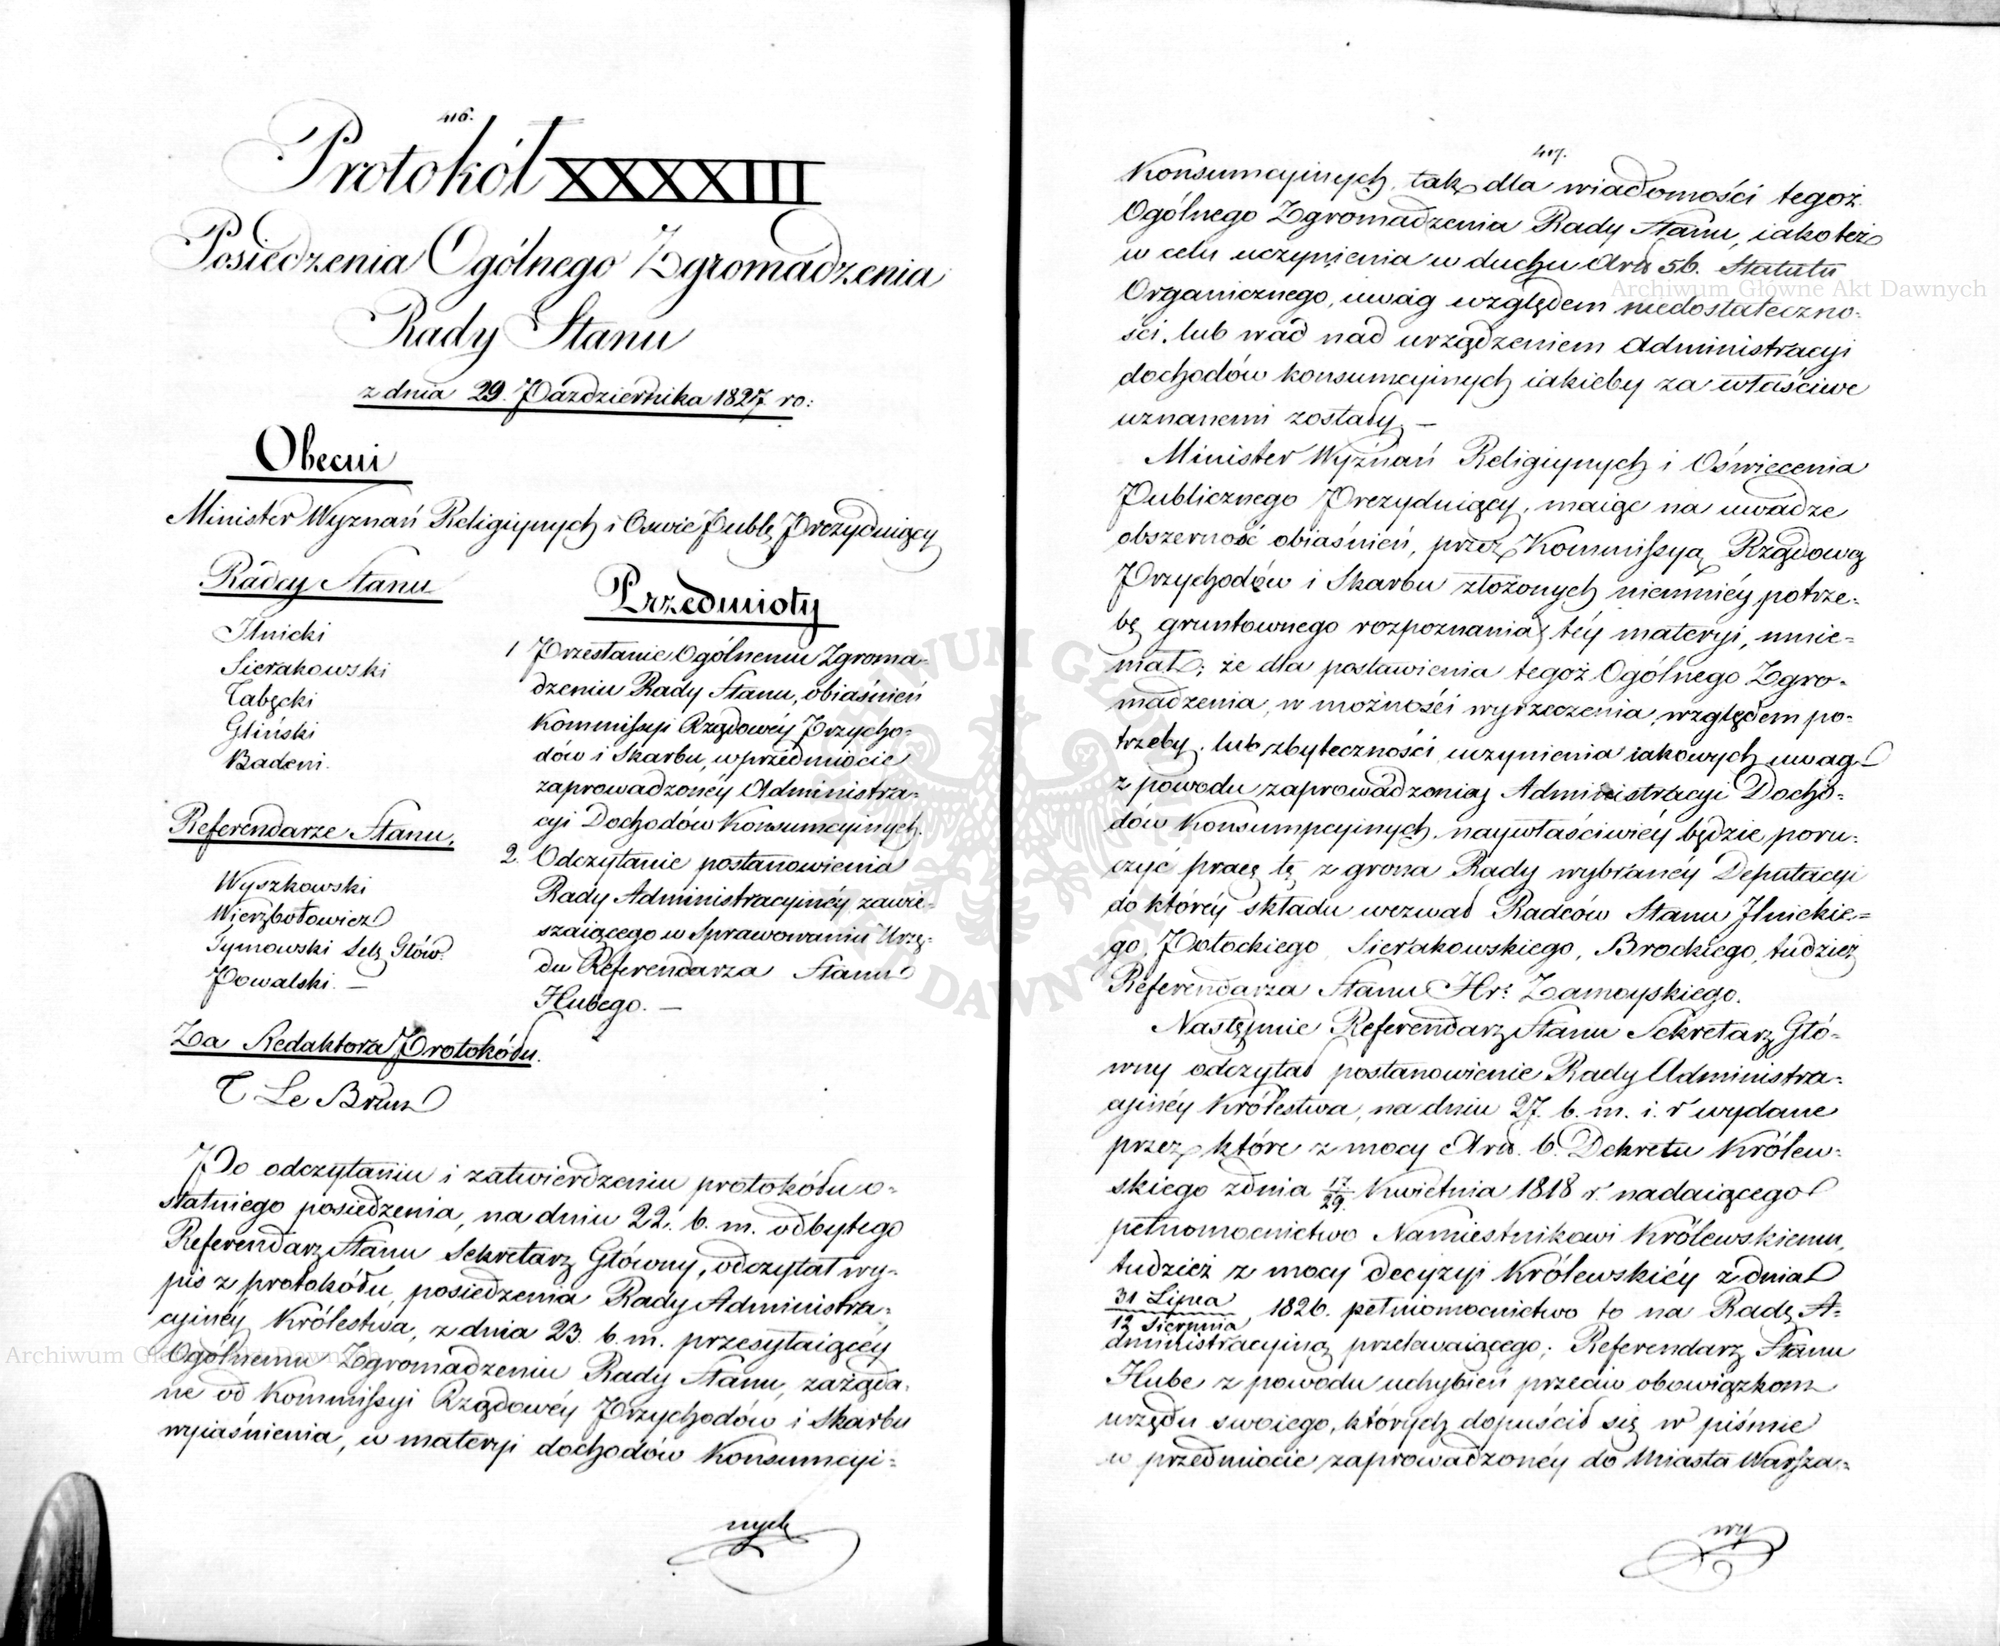 416.
Protokół XXXXIII
Posiedzenia Ogólnego Zgromadzenia
Rady Stanu
z dnia 29. Października 1827 ro:
Obecni
Minister Wyznań Religiynych i Oswie Publ. Prezyduiący
Radcy Stanu
Ilnicki
Sierakowski
Łabęcki
Gliński
Badeni.
Referendarze Stanu.
Wyszkowski
Wierzbołowicz
Tymowski Sek. Głów.
Powalski. —
Za Redaktora Protokółu.
T Le Brun
Przedmioty
1 Przesłanie Ogólnemu Zgroma-
dzeniu Rady Stanu, obiaśnień
Kommissyi Rządowéy Przycho-
dów i Skarbu, w przedmiocie
zaprowadzonéy Administra-
cyi Dochodów Konsumcyinych.
2. Odczytanie postanowienia
Rady Administracyinéy zawie-
szaiącego w Sprawowaniu Urzę-
du Referendarza Stanu
Hubego. —
Po odczytaniu i zatwierdzeniu protokółu o-
statniego posiedzenia, na dniu 22. b. m. odbytego
Referendarz Stanu Sekretarz Główny, odczytał wy-
pis z protokółu, posiedzenia Rady Administra-
cyinéy Królestwa, z dnia 23. b. m. przesyłaiącéy
Ogólnemu Zgromadzeniu Rady Stanu, zażąda-
ne od Kommissyi Rządowéy Przychodów i Skarbu
wyiaśnienia, w materyi dochodów Konsumcyi-
nych
417.
Konsumcyinych, tak dla wiadomości tegoż
Ogólnego Zgromadzenia Rady Stanu, iako też
w celu uczynienia w duchu Art 56. Statutu
Organicznego, uwag względem niedostateczno-
ści, lub wad nad urządzeniem Administracyi
dochodów konsumcyinych iakieby za właściwe
uznanemi zostały. —
Minister Wyznań Religiynych i Oświecenia
Publicznego Prezyduiący, maiąc na uwadze
obszerność obiaśnień, przez Kommissyą Rządową
Przychodów i Skarbu złożonych niemniéy potrze-
bę gruntownego rozpoznania téy materyi, mnie-
mał; że dla postawienia tegoż Ogólnego Zgro-
madzenia, w możności wyrzeczenia względem po-
trzeby, lub zbyteczności uczynienia iakowych uwag
z powodu zaprowadzonéy Administracyi Docho-
dów Konsumpcyinych, naywłaściwiéy będzie poru-
czyć pracę tę z grona Rady wybranéy Deputacyi
do któréy składu wezwał Radców Stanu Ilnickie-
go, Potockiego, Sierakowskiego, Brockiego, tudzież
Referendarza Stanu Hr: Zamoyskiego.
Następnie Referendarz Stanu Sekretarz Głó-
wny odczytał postanowienie Rady Administra-
cyinéy Królestwa, na dniu 27. b. m. i. r wydane
przez które z mocy Art. 6. Dekretu Królew-
skiego z dnia 17/29. Kwietnia 1818 r. nadaiącego
pełnomocnictwo Namiestnikowi Królewskiemu,
tudzież z mocy decyzyi Królewskiéy z dnia
31 Lipca/12 Sierpnia 1826. pełnomocnictwo to na Radę A-
dministracyiną przelewaiącego; Referendarz Stanu
Hube z powodu uchybień przeciw obowiązkom
urzędu swoiego, których dopuścił się w piśmie
w przedmiocie zaprowadzonéy do Miasta Warsza-
wy
Archiwum Główne Akt Dawnych
Archiwum Główne Akt Dawnych
ARCHIWUM GŁÓWNE AKT DAWNYCH